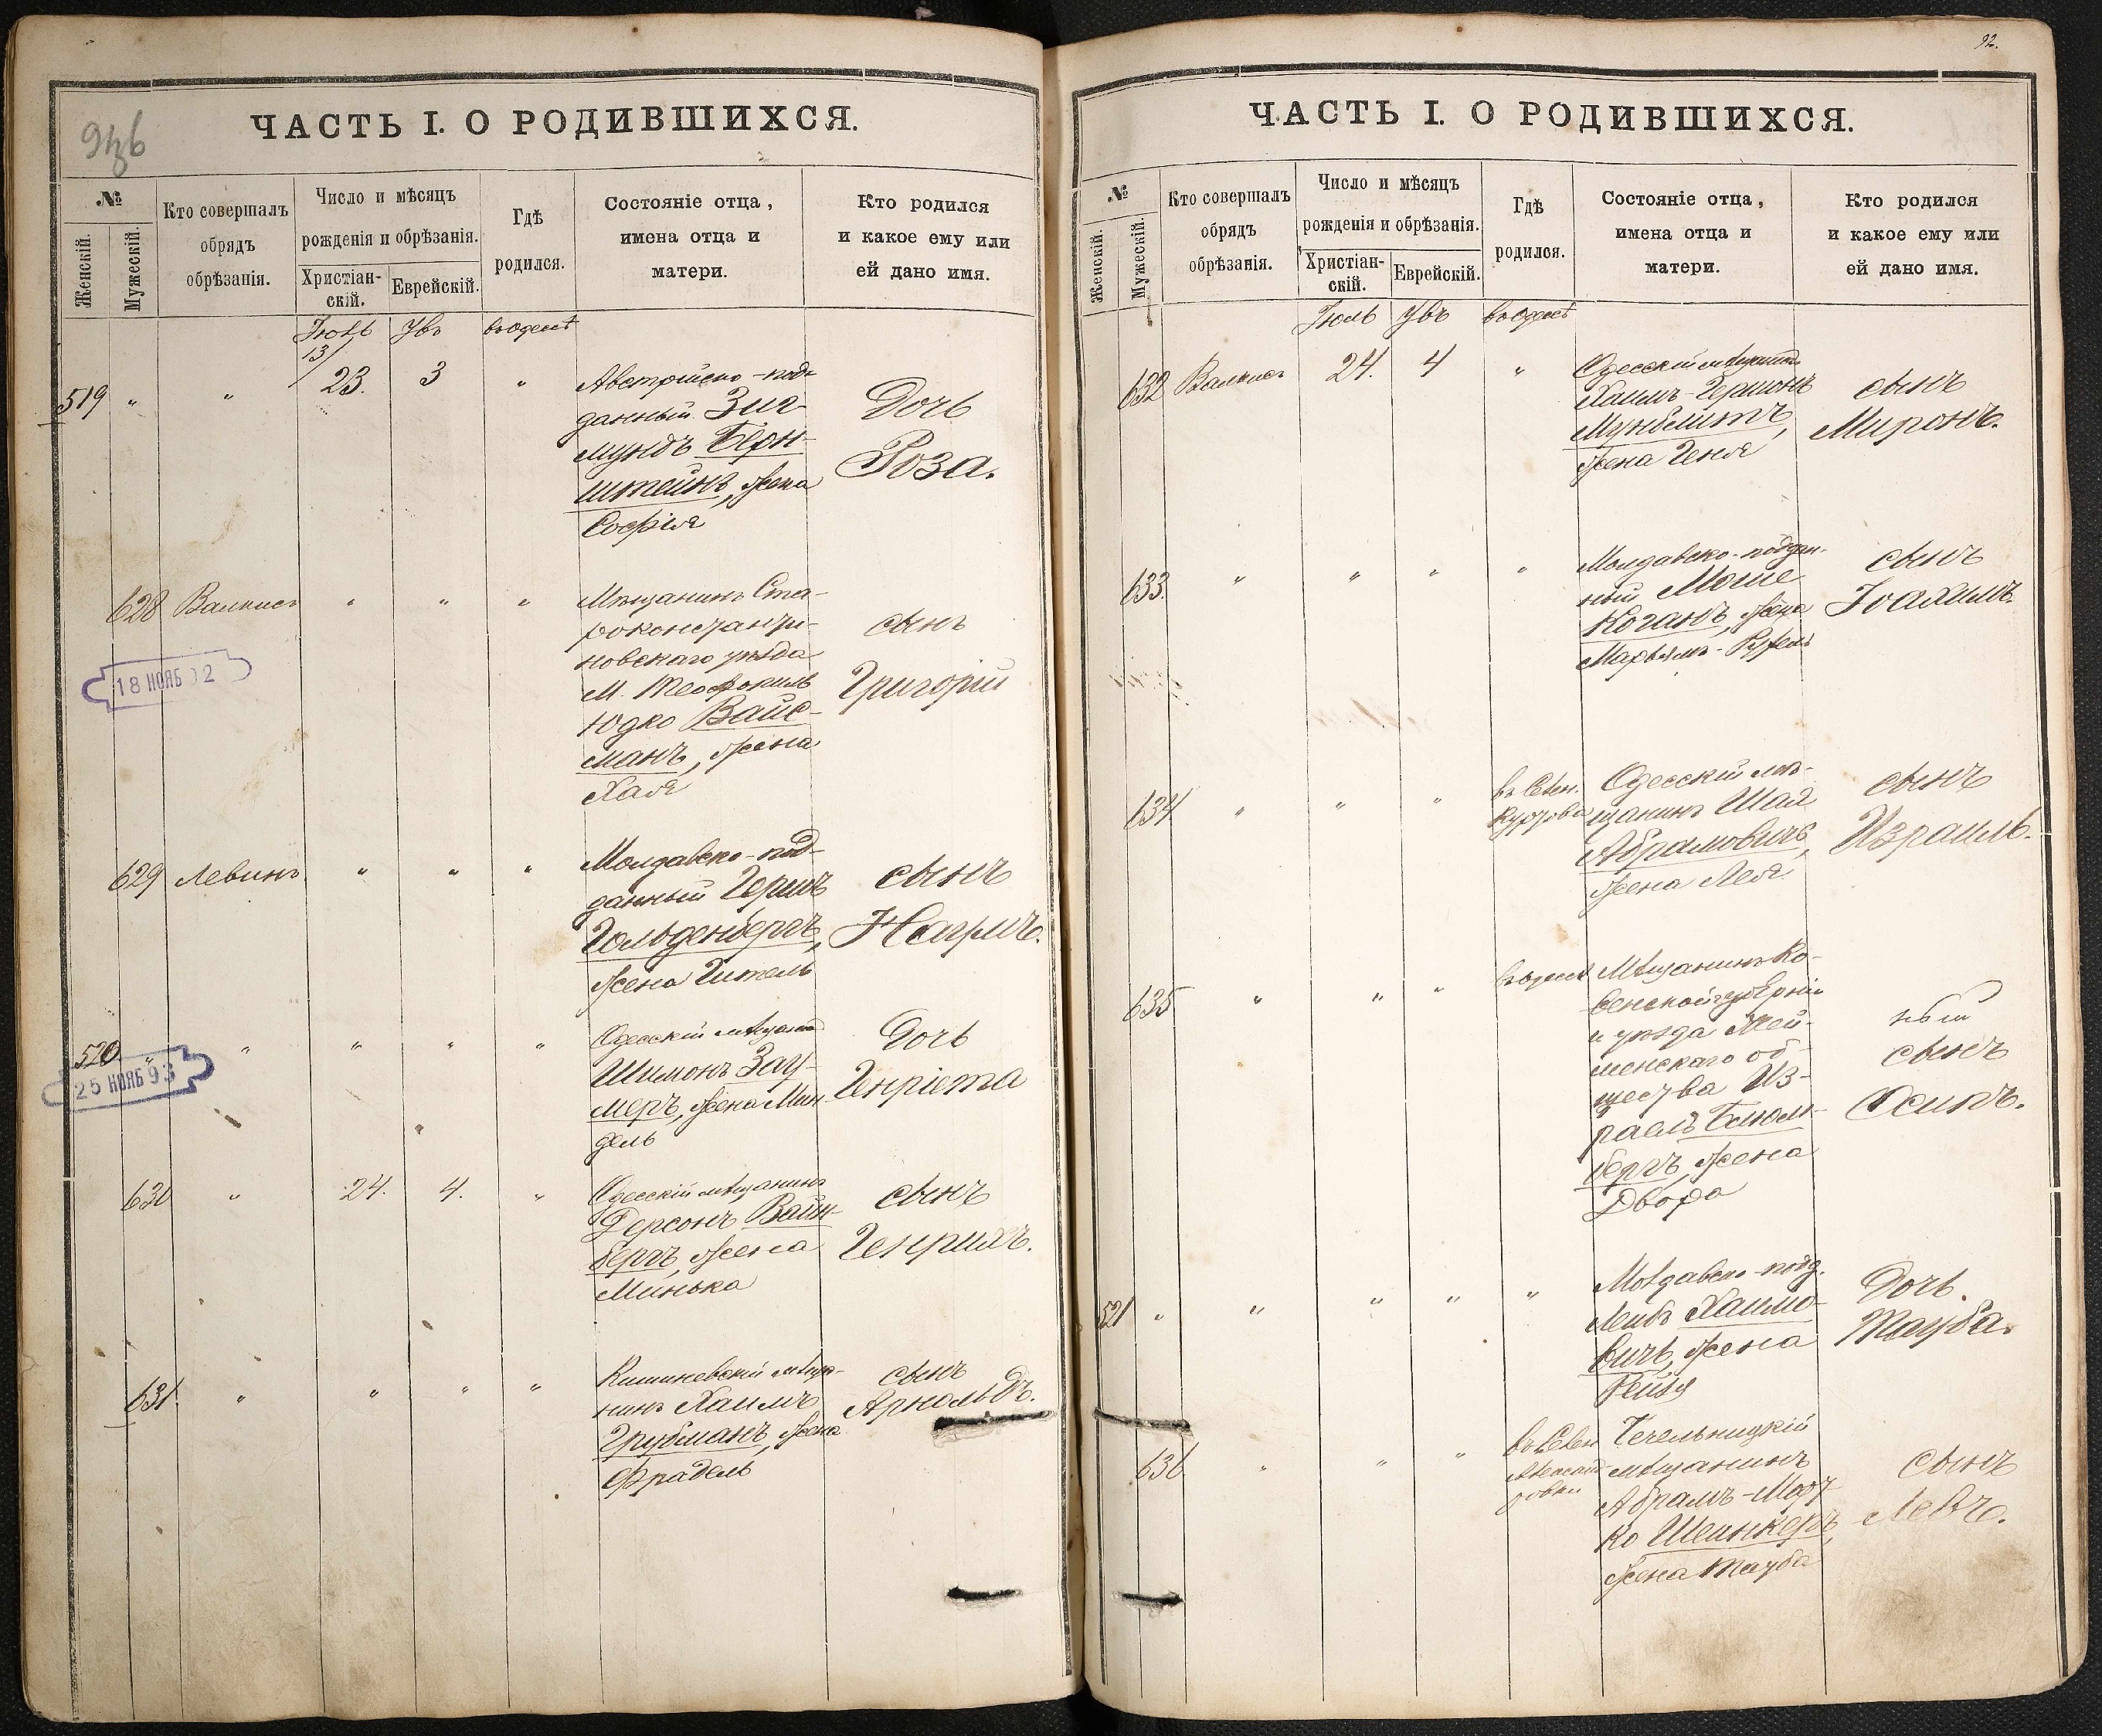 ЧАСТЬ I. О РОДИВШИХСЯ.
№
Женскій.
Мужескій.
Кто совершалъ
обрядъ
обрѣзанія.
Число и мѣсяцъ
рожденія и обрѣзанія.
Христіан-
скій.
Еврейскій.
Гдѣ
родился.
Состояніе отца,
имена отца и
матери.
Кто родился
и какое ему или
ей дано имя.
въ Одессѣ
13/
519 " " 23. 3 "
Австрійско-под-
данный Зиг-
мундъ Берн-
штейнъ, жена
Софія
Дочь
Роза.
628 " " "
Мѣщанинъ Ста-
роконстанти-
новскаго уѣзда
М. Теофиполь
Юдко Вайс-
манъ, жена
Хая
сынъ
Григорій
18 НОЯБ 2
629 Левинъ " " "
Молдавско-под-
данный Гершъ
Гольденбергъ,
жена Гитель
сынъ
520 " " " " "
Одесскій мѣщанинъ
Шимонъ Зау-
меръ, жена Мин-
дель
Дочь
Генріета
25 НОЯБ 93
630 " 24. 4. "
Одесскій мѣщанинъ
Герсонъ Вайн-
бергъ, жена
Минька
сынъ
Генрихъ.
631. " " " "
Кишиневскій мѣща-
нинъ Хаимъ
Грубманъ, жена
Фрадель
сынъ
Арнольдъ.
92.
ЧАСТЬ I. О РОДИВШИХСЯ.
№
Женскій.
Мужескій.
Кто совершалъ
обрядъ
обрѣзанія.
Число и мѣсяцъ
рожденія и обрѣзанія.
Христіан-
скій.
Еврейскій.
Гдѣ
родился.
Состояніе отца,
имена отца и
матери.
Кто родился
и какое ему или
ей дано имя.
Іюль въ Одессѣ
632 24. 4 "
Одесскій мѣщанинъ
Хаимъ-Гершонъ
Мунблитъ,
жена Геня
сынъ
Миронъ.
633. " " " "
Молдавско-поддан-
ный Моше
Коганъ, жена
Марьямъ-
сынъ
Іоахимъ.
634 " " "
Одесскій мѣ-
щанинъ Шая
Абрамовичъ,
жена Лея
сынъ
Израиль.
635 " " " въ Одессѣ
Мѣщанинъ Ко-
венской губерніи
и уѣзда Жей-
менскаго об-
щества Из-
раель Блюм-
бергъ, жена
Двора
сынъ
Осипъ.
521 " " " " "
Молдавско-подд.
Лейбъ Хаимо-
вичъ, жена
Рейзя
Дочь.
Тауба.
636 " " "
Чечельницкій
мѣщанинъ
Абрамъ-Морт-
ко Шеинкеръ,
жена Тауба
сынъ
Левъ.